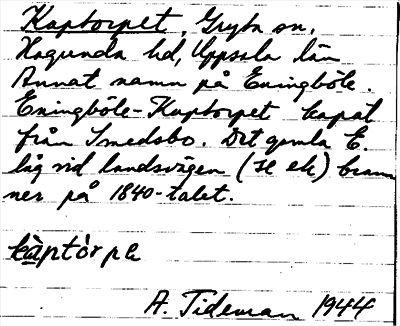 Kaptorpet, Gryta sn,
Hagunda hd, Uppsala län
Annat namn på Eningböle.
Eningböle-Kaptorpet kapat
från Smedsbo. Det gamla E.
låg vid landsvägen (se ek) bran
ner på 1840-talet.
kàptòrpe
A. Tideman 1944